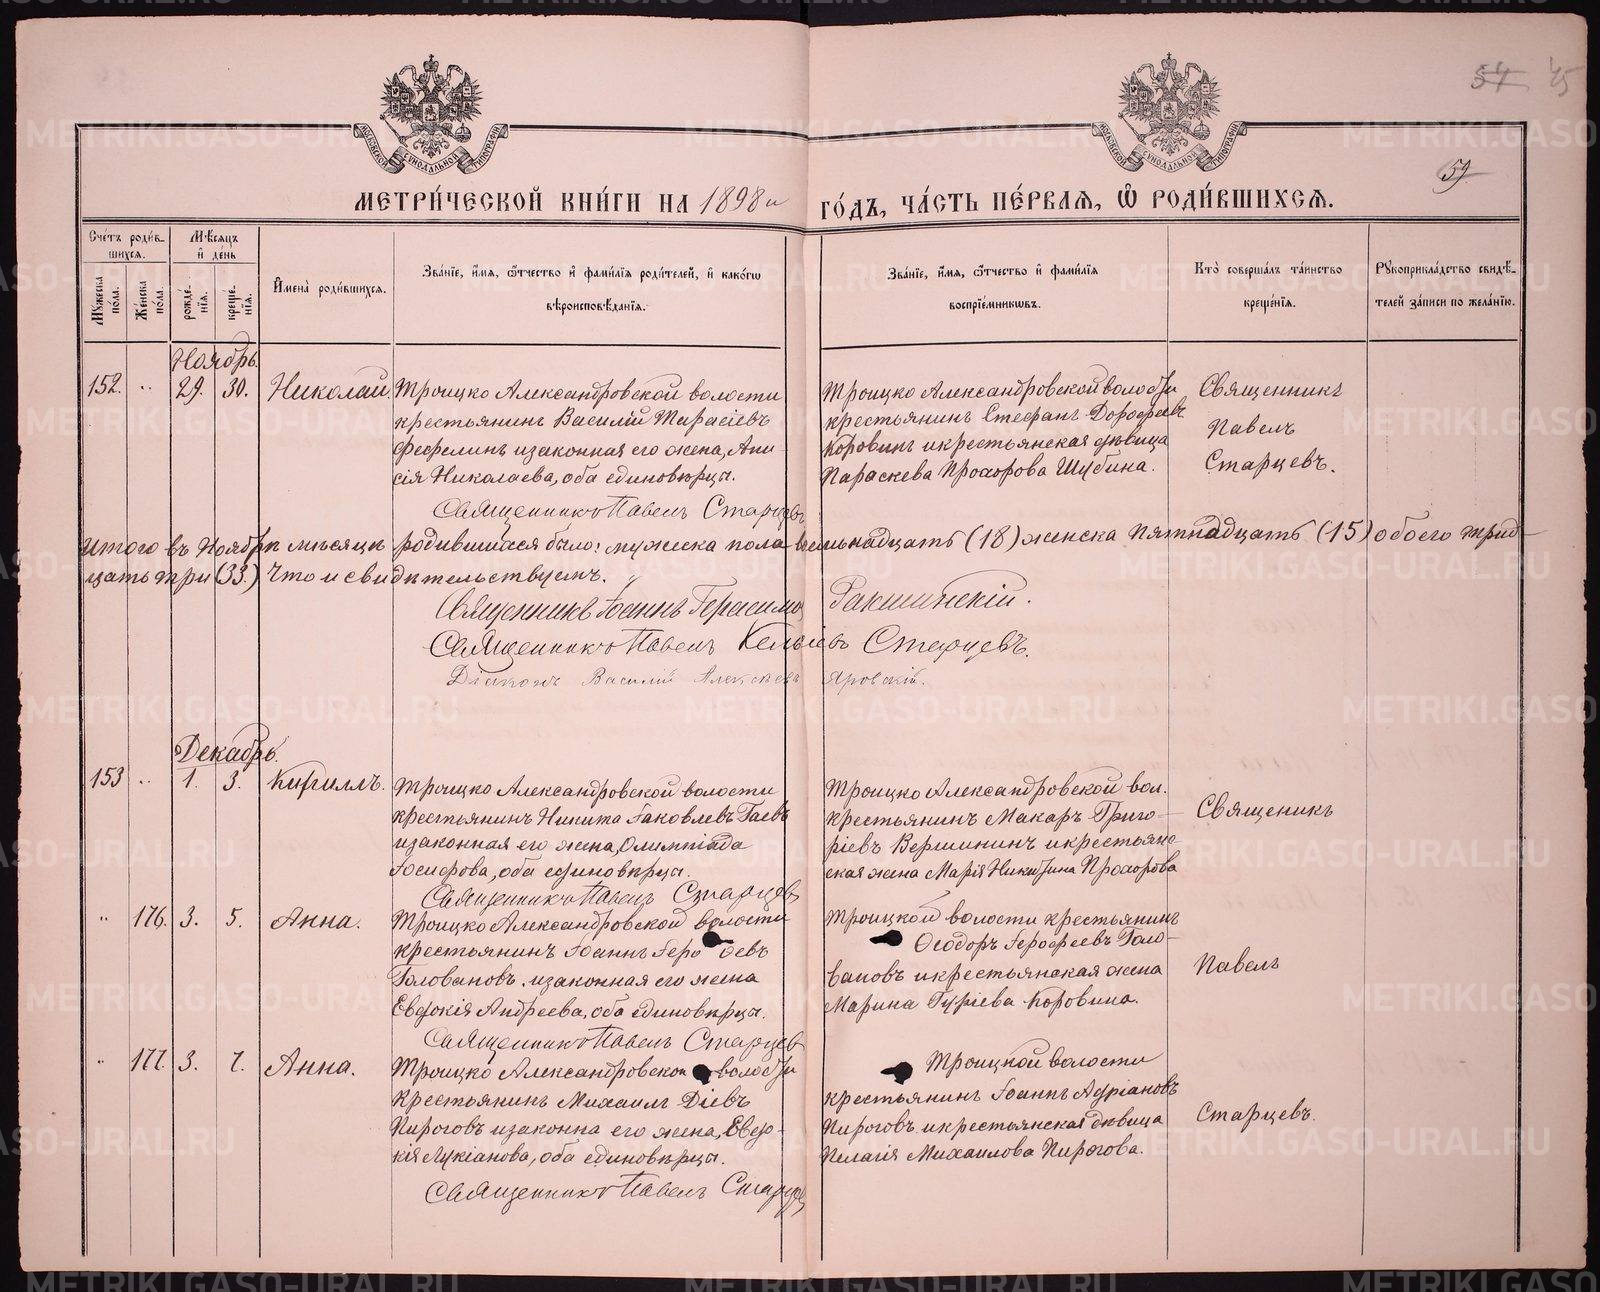 54 45
59
МОСКОВСКОЙ СѴНОДАЛЬНОЙ ТИПОГРАФІИ
МОСКОВСКОЙ СѴНОДАЛЬНОЙ ТИПОГРАФІИ
МЕТРИ́ЧЕСКОЙ КНИ́ГИ НА 1898й ГО́ДЪ, ЧА́СТЬ ПЕ́РВАЯ, Ѡ РОДИ́ВШИХСЯ.
Сче́тъ роди́в-
шихся.
Мꙋжеска пола.
Же́нска по́ла.
Мѣ́сяцъ
и҆ де́нь
рожде́-
нїя.
креще́-
нїя.
И҆мена̀ роди́вшихся.
Зва́нїе, и҆́мя, ѻ҆́тчество и҆ фами́лїя роди́телей, и҆ како́гѡ
вѣроисповѣ́данїя.
Зва́нїе, и҆́мя, ѻ҆́тчество и҆ фами́лїя
воспрїе́мникѡвъ.
Кто̀ соверша́лъ та́инство
креще́нїя.
Рꙋкоприкла́дство свидѣ́-
телей за́писи по жела́нїю.
Ноябрь.
152. " 29. 30. Николай.
Троицко Александровской волости
крестьянинъ Василій Тарасіевъ
Фефелинъ и законная его жена, Ани-
сія Николаева, оба единовѣрцы.
Священникъ Павелъ Старцевъ
Троицко Александровской волости
крестьянинъ Стефанъ Дорофеевъ
Коровинъ и крестьянская дѣвица
Параскева Прохорова Шубина.
Священникъ
Павелъ
Старцевъ.
Итого въ Ноябрѣ мѣсяцѣ родившихся было: мужска пола восемьнадцать (18) женска пятнадцать (15) обоего трид-
цать три (33.) Что и свидѣтельствуемъ.
Священникъ Іоаннъ Герасимовъ Ракшинскій.
Священникъ Павелъ Кельсіевъ Старцевъ.
Діаконъ Василій Алексѣевъ Яровскій.
Декабрь.
153 " 1. 3. Кириллъ.
Троицко Александровской волости
крестьянинъ Никита Іаковлевъ Гаевъ
и законная его жена, Олимпіада
Іосифова, оба единовѣрцы.
Священникъ Павелъ Старцевъ
Троицко Александровской вол.
крестьянинъ Макаръ Григо-
ріевъ Вершининъ и крестьянс-
кая жена Марія Никитина Прохорова
Священикъ
" 176. 3. 5. Анна.
Троицко Александровской волости
крестьянинъ Іоаннъ Іеро оевъ
Головановъ. и законная его жена
Евдокія Андреева, оба единовѣрцы.
Священникъ Павелъ Старцевъ
Троицкой волости крестьянинъ
Ѳеодоръ Іерофеевъ Голо-
вановъ и крестьянская жена
Марина Гуріева Коровина.
Павелъ
" 177. 3. 7. Анна.
Троицко Александровской волости
крестьянинъ Михаилъ Діевъ
Пироговъ и законна его жена, Евдо-
кія Лукіанова, оба единовѣрцы.
Священникъ Павелъ Старцевъ
Троицкой волости
крестьянинъ Іоаннъ Адріановъ
Пироговъ и крестьянская дѣвица
Пелагія Михаилова Пирогова.
Старцевъ.
METRIKI.GASO-URAL.RU